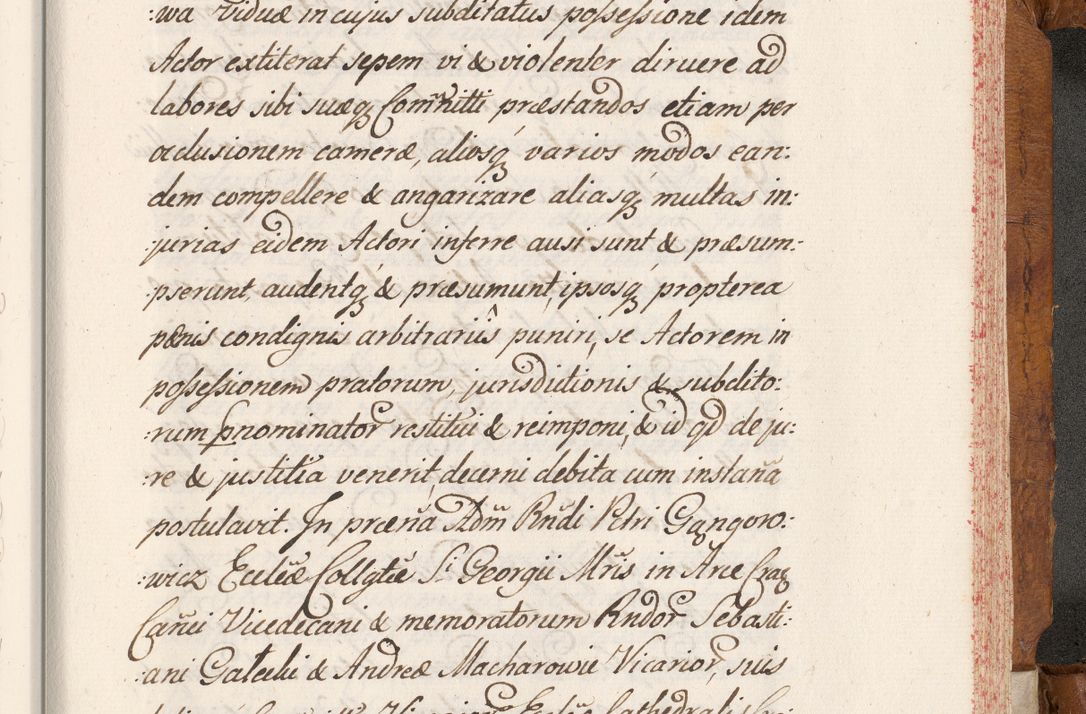 :wa Viduæ in cujus subditatus possessione idem
Actor extiterat sepem vi & violenter diruere ad
labores sibi suæq Com̃itti præstandos etiam per
oclusionem cameræ, aliosq́ varios modos ean:
dem compellere & angarizare aliasq́ multas in:
:jurias eidem Actori inferre ausi sunt & præsum:
:pserunt, audentq́ & præsumunt, ipsosq́ propterea
pænis condignis arbitrariis puniri, se Actorem in
possessionem pratorum, jurisditionis & subdito:
:rum pnominator restitui & reimponi, & id qd de ju:
:re & justitia venerit, decerni debita cum instan̄a
postulavit. In præen̄a Adm̄ Rn̄di Petri Gągoro:
:wicz Eccl̄æ Collgtæ S. Georgii Mr̄is in Arce Crac
Can̄ci Vicedecani & memoratorum Rndor Sebasti:
:ani Gatecki & Andreæ Macharowic Vicarior, suis